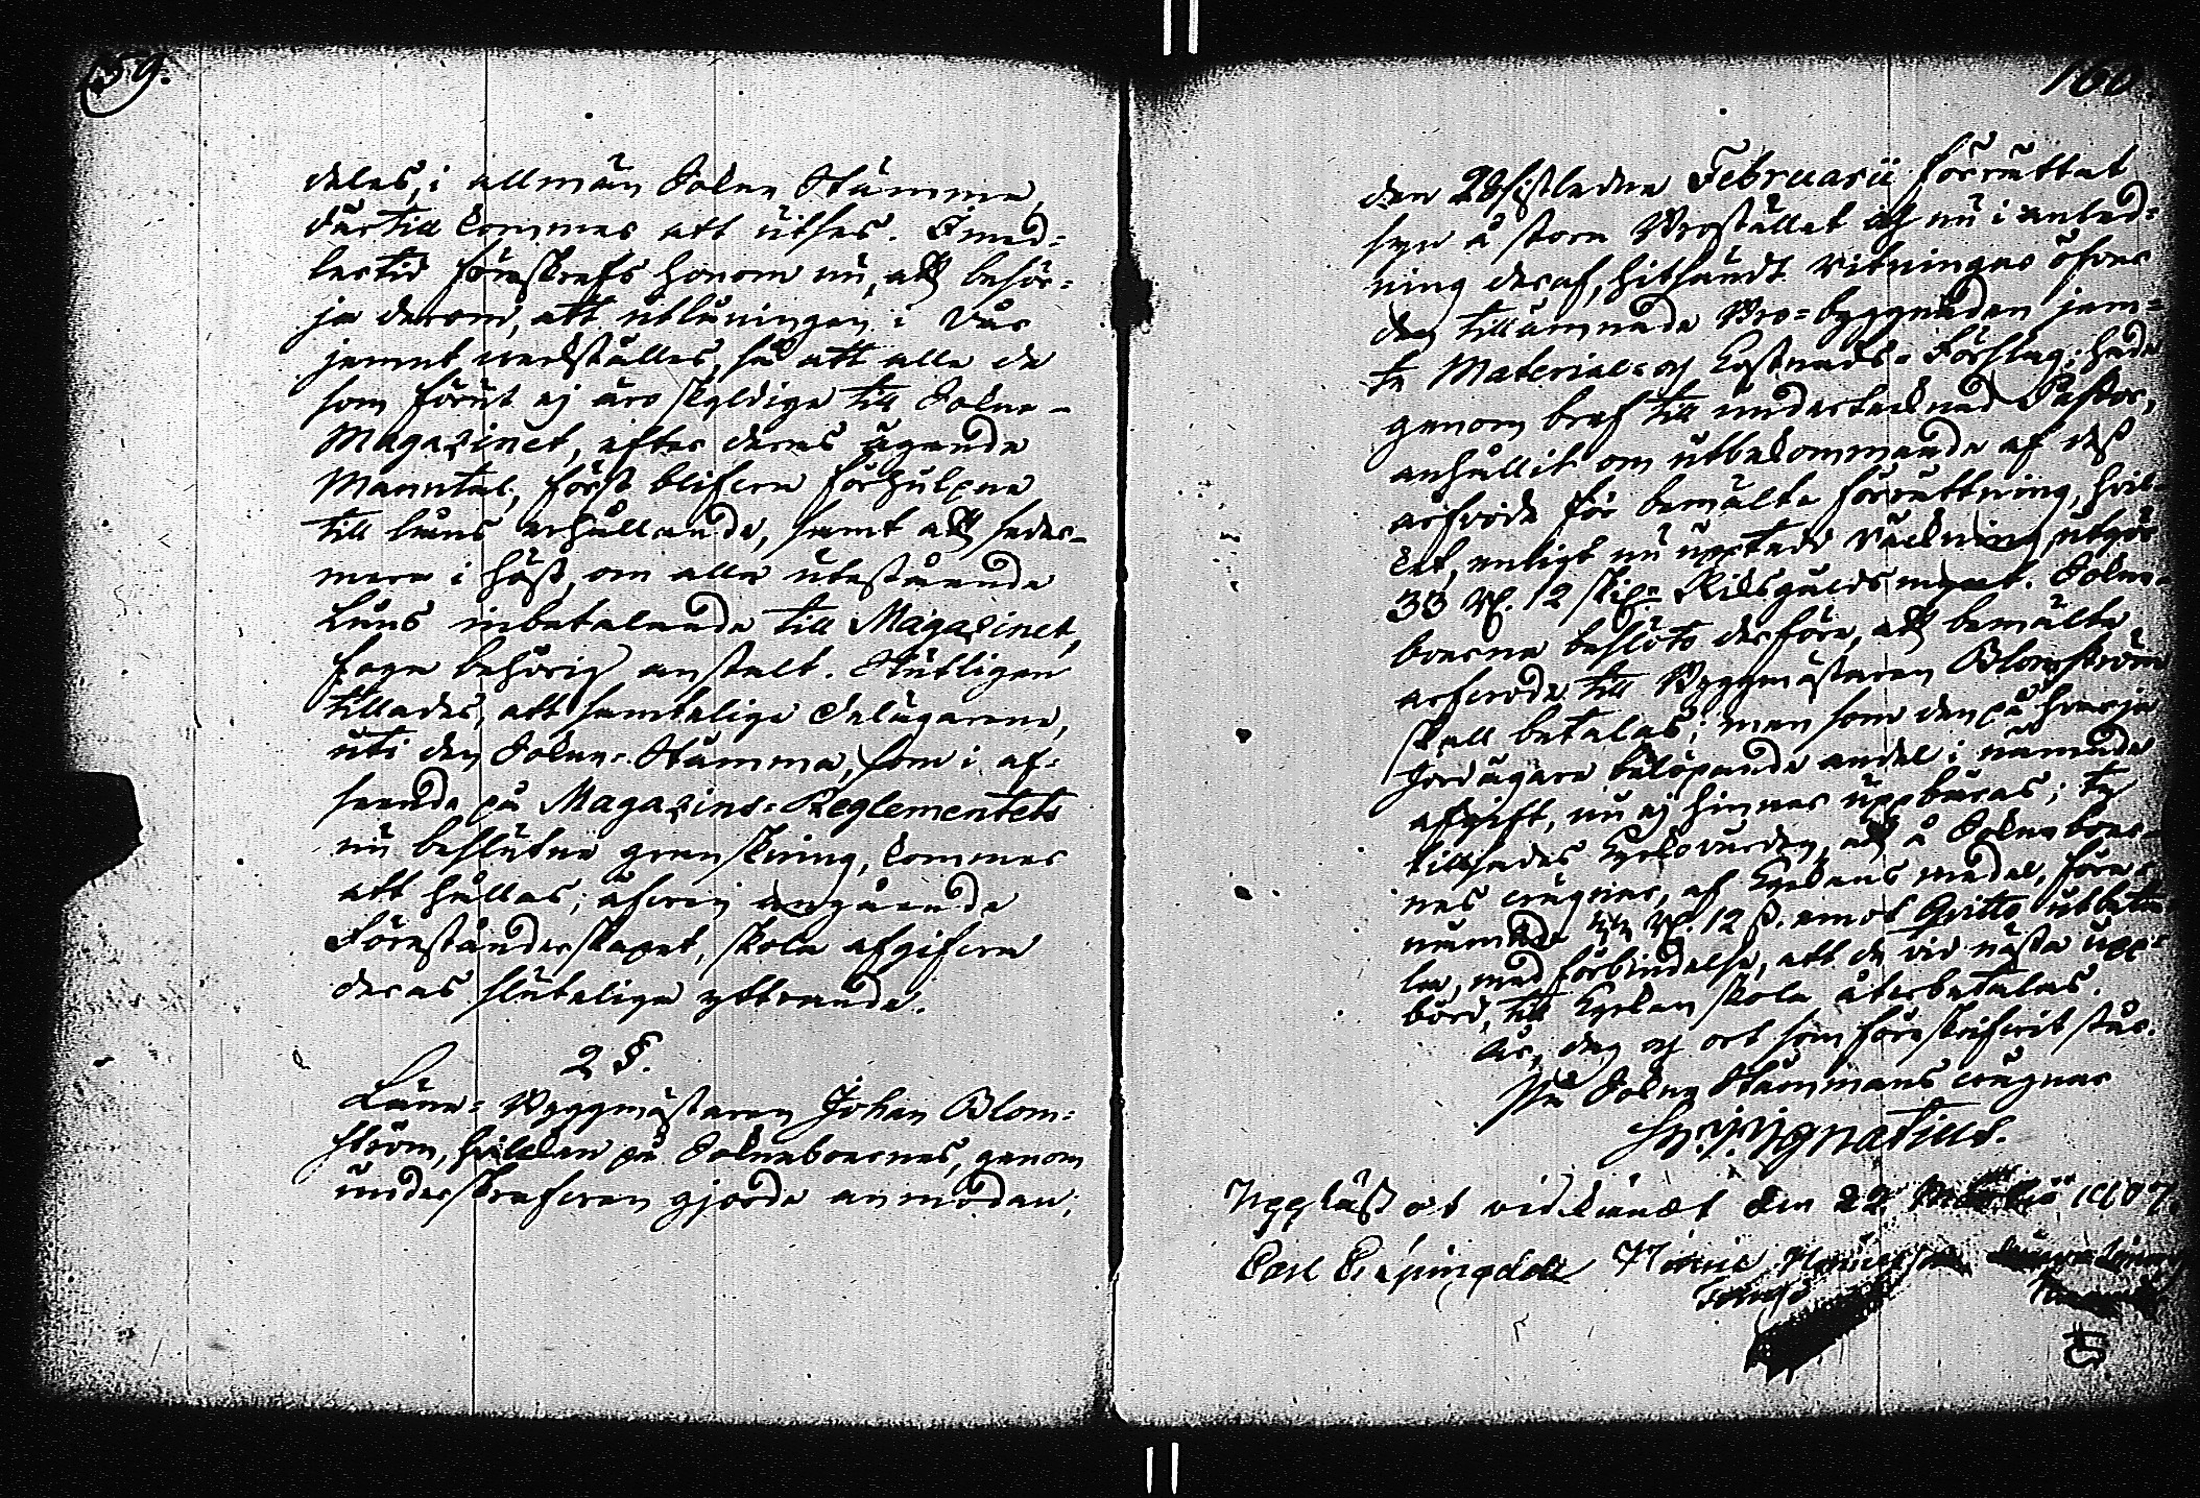 159.
deles, i allmän Sokne Stämma,
därtill kommer att utses. Imed=
lertid föreskrefs honom nu, att besör=
ja derom, att utlåningen i Vår
jemnt verkställes, så att alla de
som förut ej äro skyldige till Sokne-
Magazinet, efter deras ägande
Manntal, först blifva förhulpne
till låns erhållande, samt att seder-
mera i höst, om alla utestående
Låns inbetalande till Magazinet,
foga behörig anstalt. Slutligen
tillades, att samtelige delägarene,
uti den Sokne-Stämma, som i af=
seende på Magazins=Reglementets
nu beslutne granskning, kommer
att hållas; äfven angående
Föreståndarskapet, skola afgifva
deras slutelige yttrande.
2 §.
Läne=Byggmästaren Johan Blom=
ström, hvilken på Sokneboernes, genom
underskrefven gjorde anmodan,
160.
den 28 sistledne Februarii förrättat
syn å stora Brostället och nu i anled=
ning deraf, hitsändt ritningar öfver
den tillämnade Bro=byggnaden jem=
te Material= och Kostnads=Förslag; hade
genom bref till undertecknad Pastor,
anhållit om utbekommande af dess
arfvode för bemälte förrättning, hvil-
ket, enligt nu upptedd räckning utgör
33 Rd. 12 skil: Riksgäldsmynt. Sokne-
boerne beslöto derföre, att bemälte
arfvode till Byggmästaren Blomström
skall betalas; men som den på hvarje
Jordägare belöpande andel i nämnde
afgift, nu ej hinner uppbäras; ty
tillsades Kyrkovärden, att å Sokneboer-
nes vägnar, af Kyrkans medel, före-
nämnde 33 Rd. 12 s. emot Qvitto utbeta-
la, med förbindelse, att de vid nästa upp=
börd, till Kyrkan skola återbetalas.
År, dag och ort som föreskrifvit står.
På Sokne Stämmans vägnar
J. Ignatius.
Uppläst och vidkändt den 22 Martii 1807.
Carl